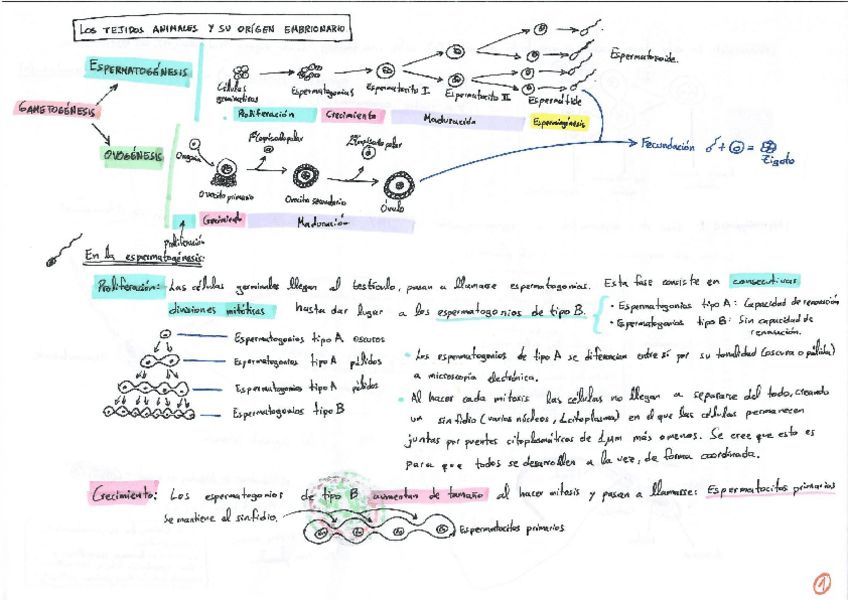 LOS TEJIDOS ANIMALES Y SU ORÍGEN EMBRIONARIO
ESPERMATOGÉNESIS
GAMETOGÉNESIS
OVOGÉNESIS
Células germinativas
Espermatogonias
Espermatocito I
Espermatocito II
Espermátide
Espermatozoide.
Proliferación
Crecimiento
Maduración
Espermiogénesis
Ovogonia
1er Corpúsculo polar
2º Corpúsculo polar
Ovocito primario
Ovocito secundario
Óvulo
Fecundación
+ =
Zigoto
Crecimiento
Maduración
Proliferación
En la espermatogénesis:
Proliferación: Las células germinales llegan al testículo, pasan a llamarse espermatogonias. Esta fase consiste en consecutivas
divisiones mitóticas hasta dar lugar a los espermatogonios de tipo B.
• Espermatogonios tipo A: Capacidad de renovación
• Espermatogonios tipo B: Sin capacidad de
renovación.
Espermatogonios tipo A oscuros
Espermatogonios tipo A pálidos
Espermatogonios tipo A pálidos
Espermatogonios tipo B
• Los espermatogonios de tipo A se diferencian entre sí por su tonalidad (oscura o pálida)
a microscopía electrónica.
• Al hacer cada mitosis las células no llegan a separarse del todo, creando
un sinfidio (varios núcleos, 1 citoplasma) en el que las células permanecen
juntas por puentes citoplasmáticos de 1µm más o menos. Se cree que esto es
para que todos se desarrollen a la vez, de forma coordinada.
Crecimiento: Los espermatogonios de tipo B aumentan de tamaño al hacer mitosis y pasan a llamarse: Espermatocitos primarios
Se mantiene el sinfidio.
Espermatocitos primarios
1